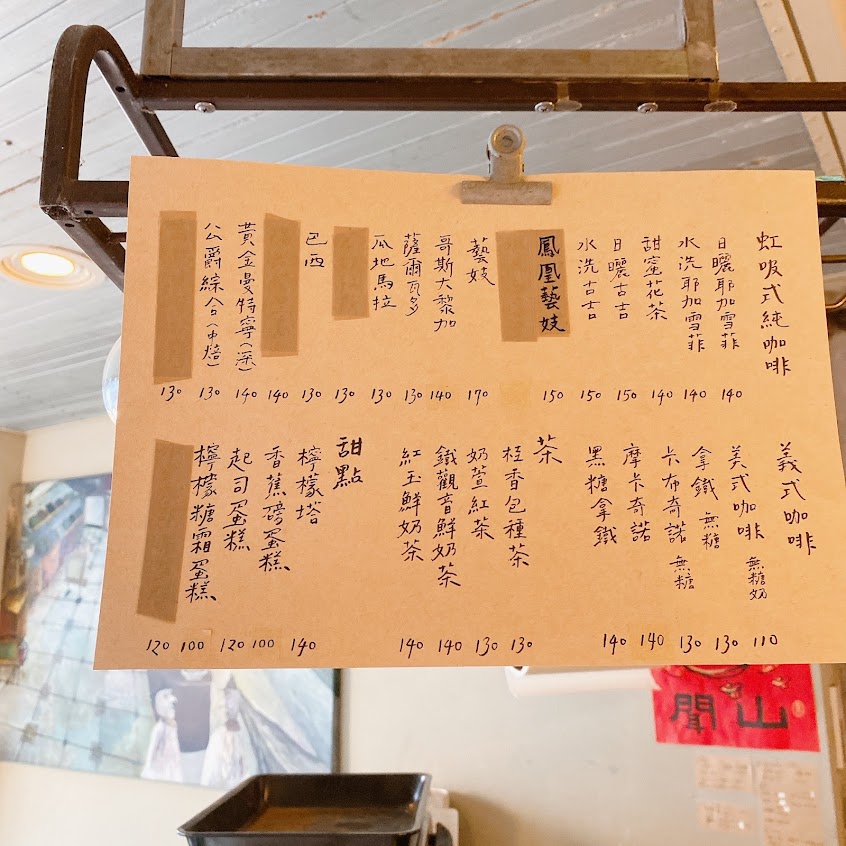 虹吸式純咖啡
日曬耶加雪菲 140
水洗耶加雪菲 140
甜蜜花茶 140
日曬古吉 150
水洗古吉 150
鳳凰藝妓 150
藝妓 170
哥斯大黎加 140
薩爾瓦多 130
瓜地馬拉 130
130
巴西 130
140
黃金曼特寧(深) 140
公爵綜合(中焙) 130
130
義式咖啡
美式咖啡 無糖奶 110
拿鐵 無糖 130
卡布奇諾 無糖 130
摩卡奇諾 140
黑糖拿鐵 140
茶
桂香包種茶 130
奶萱紅茶 130
鐵觀音鮮奶茶 140
紅玉鮮奶茶 140
甜點
檸檬塔 140
香蕉磅蛋糕 100
起司蛋糕 120
檸檬糖霜蛋糕 100
120
山聞